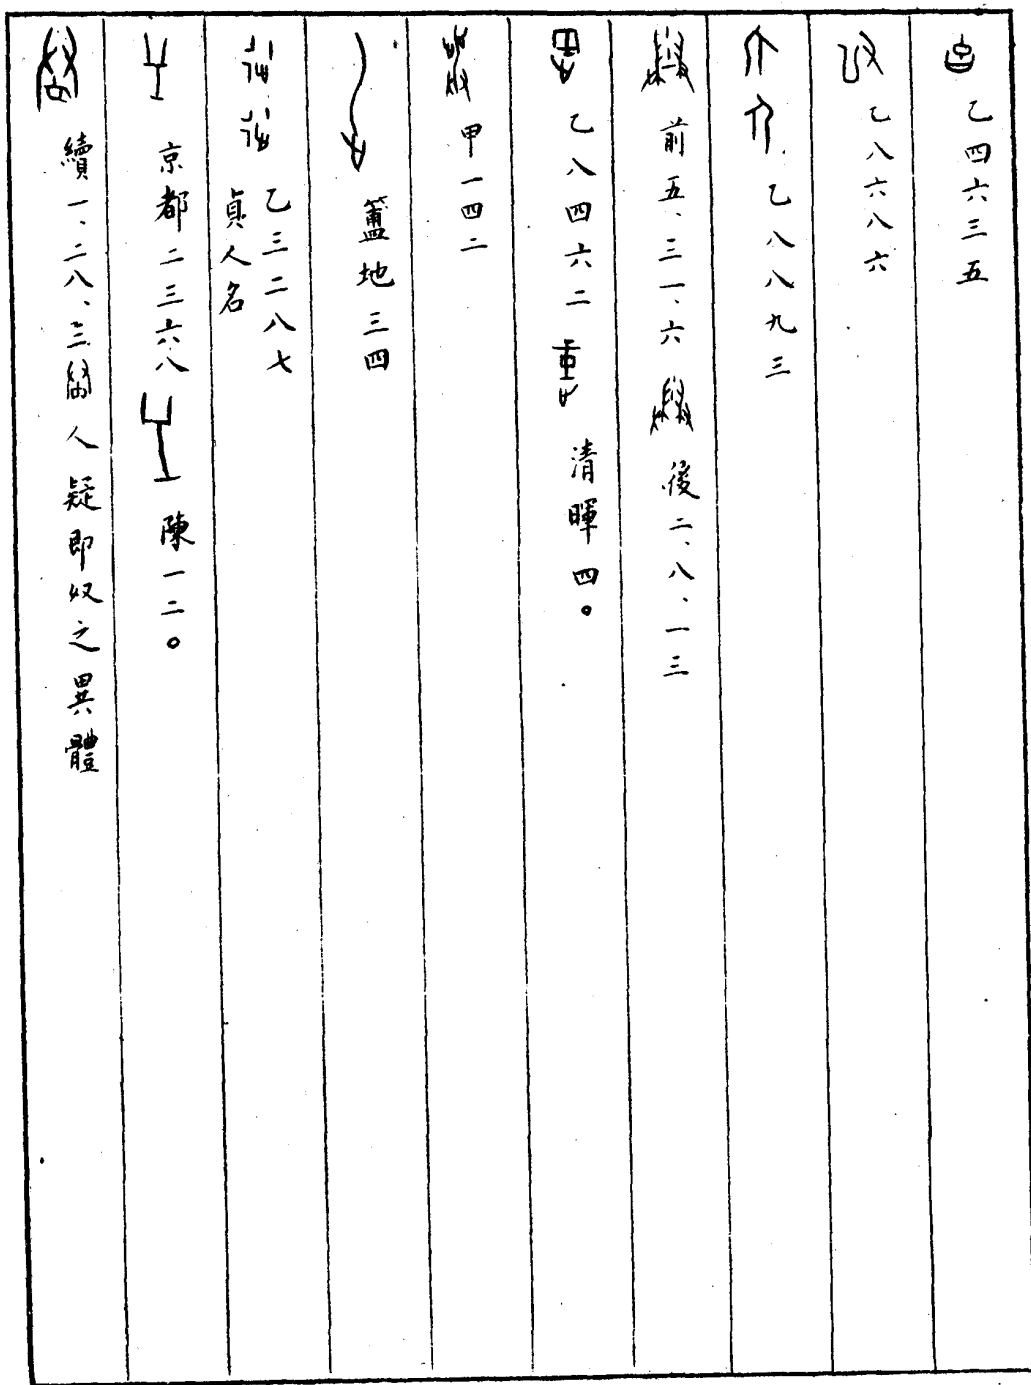 乙四六三五
乙八六八六
乙八八九三
前五、三一、六 後二、八、一三
乙八四六二 清暉四。
甲一四二
簠地三四
乙三二八七
貞人名
京都二三六八 陳一二。
續一、二八、三 人疑即奴之異體